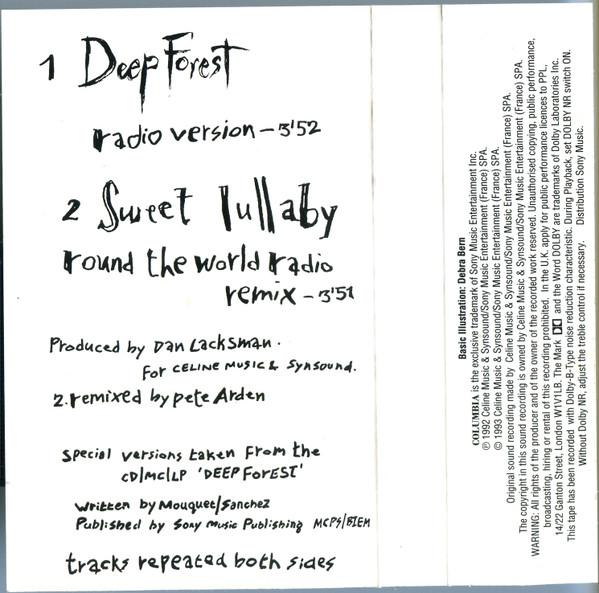 1 Deep Forest
radio version - 3'52
2 Sweet lullaby
round the world radio
remix - 3'51
Produced by Dan Lacksman.
For CELINE MUSIC & Synsound.
2. remixed by pete Arden
Special versions taken from the
CD/MC/LP 'DEEP FOREST'
Written by Mouquet/Sanchez
Published by Sony Music Publishing MCPS/BIEM
tracks repeated both sides
Basic Illustration: Debra Bern
COLUMBIA is the exclusive trademark of Sony Music Entertainment Inc.
℗ 1992 Celine Music & Synsound/Sony Music Entertainment (France) SPA.
© 1993 Celine Music & Synsound/Sony Music Entertainment (France) SPA.
Original sound recording made by Celine Music & Synsound/Sony Music Entertainment (France) SPA.
The copyright in this sound recording is owned by Celine Music & Synsound/Sony Music Entertainment (France) SPA.
WARNING: All rights of the producer and of the owner of the recorded work reserved. Unauthorised copying, public performance,
broadcasting, hiring or rental of this recording prohibited. In the U.K. apply for public performance licences to PPL,
14/22 Ganton Street, London W1V1LB. The Mark and the Word DOLBY are trademarks of Dolby Laboratories Inc.
This tape has been recorded with Dolby-B-Type noise reduction characteristic. During Playback, set DOLBY NR switch ON.
Without Dolby NR, adjust the treble control if necessary. Distribution Sony Music.